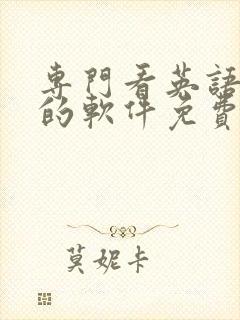 專門看英語
的軟件免費
莫妮卡